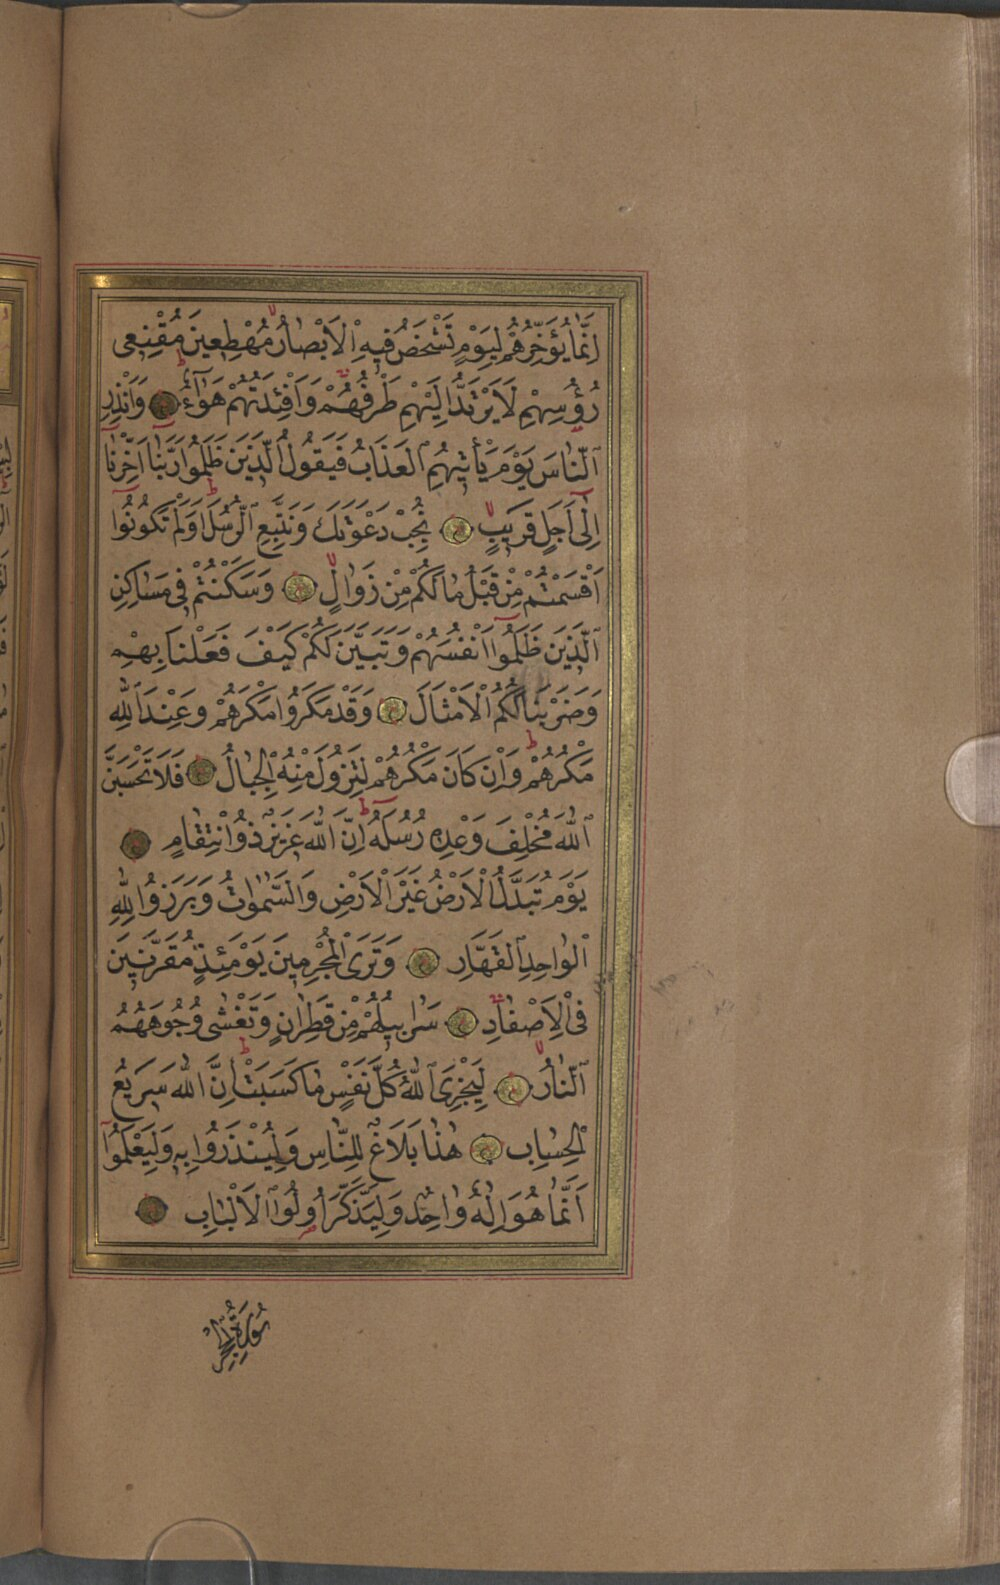 اِنَّمَا يُؤَخِّرُهُمْ لِيَوْمٍ تَشْخَصُ فِيهِ الْاَبْصَارُ مُهْطِعِينَ مُقْنِعِى
رُؤُسِهِمْ لَا يَرْتَدُّ اِلَيْهِمْ طَرْفُهُمْ وَاَفْئِدَتُهُمْ هَوَٓاءٌ وَاَنْذِرِ
النَّاسَ يَوْمَ يَأْتِيهِمُ الْعَذَابُ فَيَقُولُ الَّذِينَ ظَلَمُوا رَبَّنَٓا اَخِّرْنَٓا
اِلٰٓى اَجَلٍ قَرِيبٍ نُجِبْ دَعْوَتَكَ وَنَتَّبِعِ الرُّسُلَ اَوَلَمْ تَكُونُٓوا
اَقْسَمْتُمْ مِنْ قَبْلُ مَا لَكُمْ مِنْ زَوَالٍ وَسَكَنْتُمْ فِى مَسَاكِنِ
الَّذِينَ ظَلَمُٓوا اَنْفُسَهُمْ وَتَبَيَّنَ لَكُمْ كَيْفَ فَعَلْنَا بِهِمْ
وَضَرَبْنَا لَكُمُ الْاَمْثَالَ وَقَدْ مَكَرُوا مَكْرَهُمْ وَعِنْدَ اللّٰهِ
مَكْرُهُمْ وَاِنْ كَانَ مَكْرُهُمْ لِتَزُولَ مِنْهُ الْجِبَالُ فَلَا تَحْسَبَنَّ
اللّٰهَ مُخْلِفَ وَعْدِهِ رُسُلَهُ اِنَّ اللّٰهَ عَزِيزٌ ذُو انْتِقَامٍ
يَوْمَ تُبَدَّلُ الْاَرْضُ غَيْرَ الْاَرْضِ وَالسَّمٰوَاتُ وَبَرَزُوا لِلّٰهِ
الْوَاحِدِ الْقَهَّارِ وَتَرَى الْمُجْرِمِينَ يَوْمَئِذٍ مُقَرَّنِينَ
فِى الْاَصْفَادِ سَرَابِيلُهُمْ مِنْ قَطِرَانٍ وَتَغْشٰى وُجُوهَهُمُ
النَّارُ لِيَجْزِىَ اللّٰهُ كُلَّ نَفْسٍ مَا كَسَبَتْ اِنَّ اللّٰهَ سَرِيعُ
الْحِسَابِ هٰذَا بَلَاغٌ لِلنَّاسِ وَلِيُنْذَرُوا بِهِ وَلِيَعْلَمُٓوا
اَنَّمَا هُوَ اِلٰهٌ وَاحِدٌ وَلِيَذَّكَّرَ اُولُوا الْاَلْبَابِ
سُورَةُ الْحِجْرِ